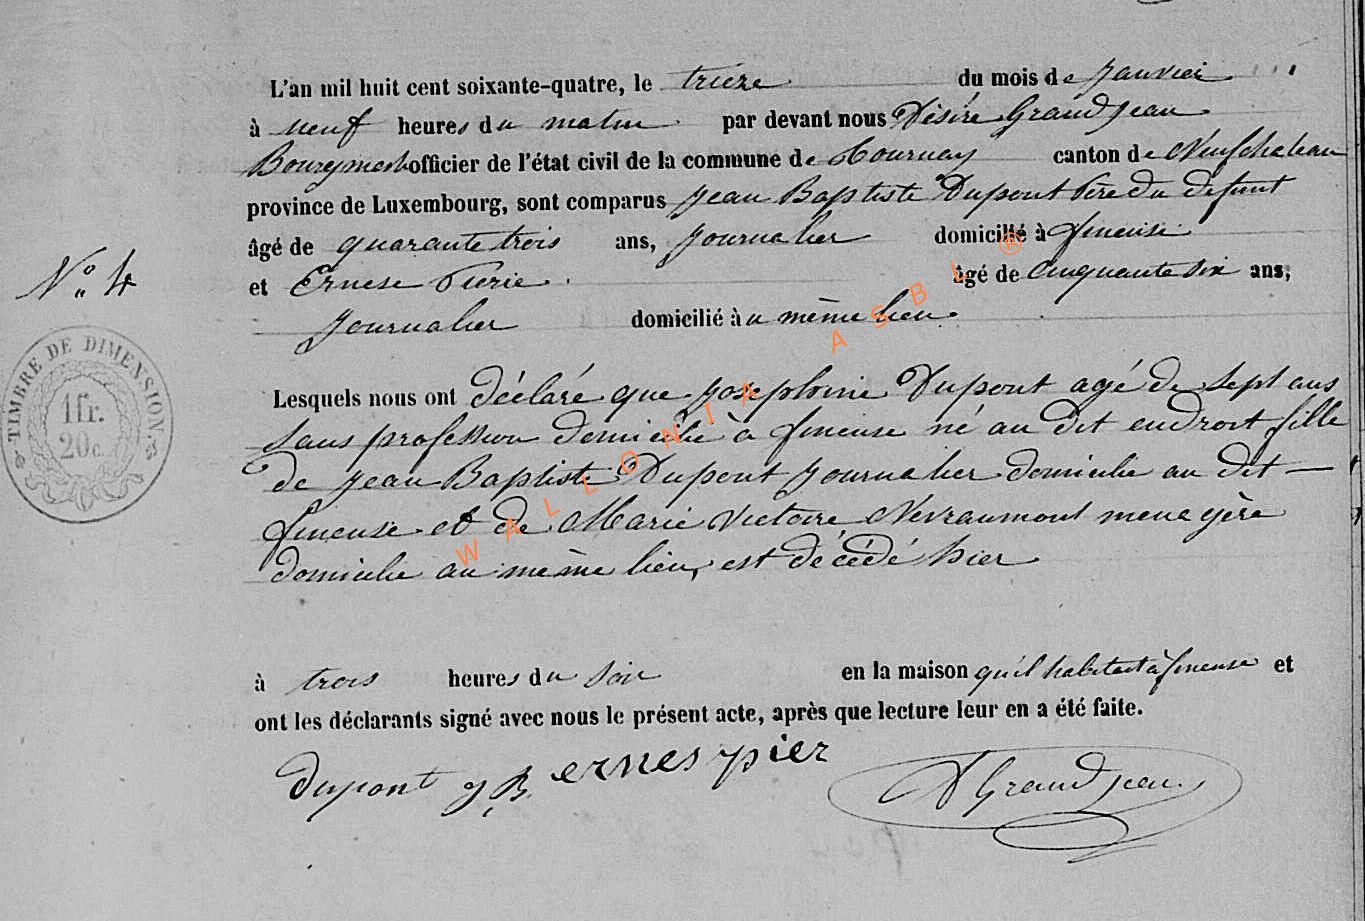 L'an mil huit cent soixante-quatre, le trieze du mois de Janvier
à neuf heures du matin par devant nous Désiré Grandjean
Bourgmest officier de l'état civil de la commune de Tournay canton de Neufchateau
province de Luxembourg, sont comparus Jean Baptiste Dupont Père du defunt
âgé de quarante trois ans, Journalier domicilié à fineuse
N° 4
et Ernese Pierie âgé de Cinquante six ans,
Journalier domicilié à u même lieu.
TIMBRE DE DIMENSION.
1 fr.
20 c.
Lesquels nous ont déclaré que Josephine Dupont agé de Sept ans
Sans profession domicilié à fineuse né au dit endroit fille
de Jean Baptiste Dupont Journalier domicilie au dit —
fineuse et de Marie Victoire Nevraumont menagère
domicilie au même lieu, est décédé hier
à trois heures du Soir en la maison qu'il habitait à fineuse et
ont les déclarants signé avec nous le présent acte, après que lecture leur en a été faite.
dupont j B. ernes pier DGrandjean
WALLONIA ASBL ®